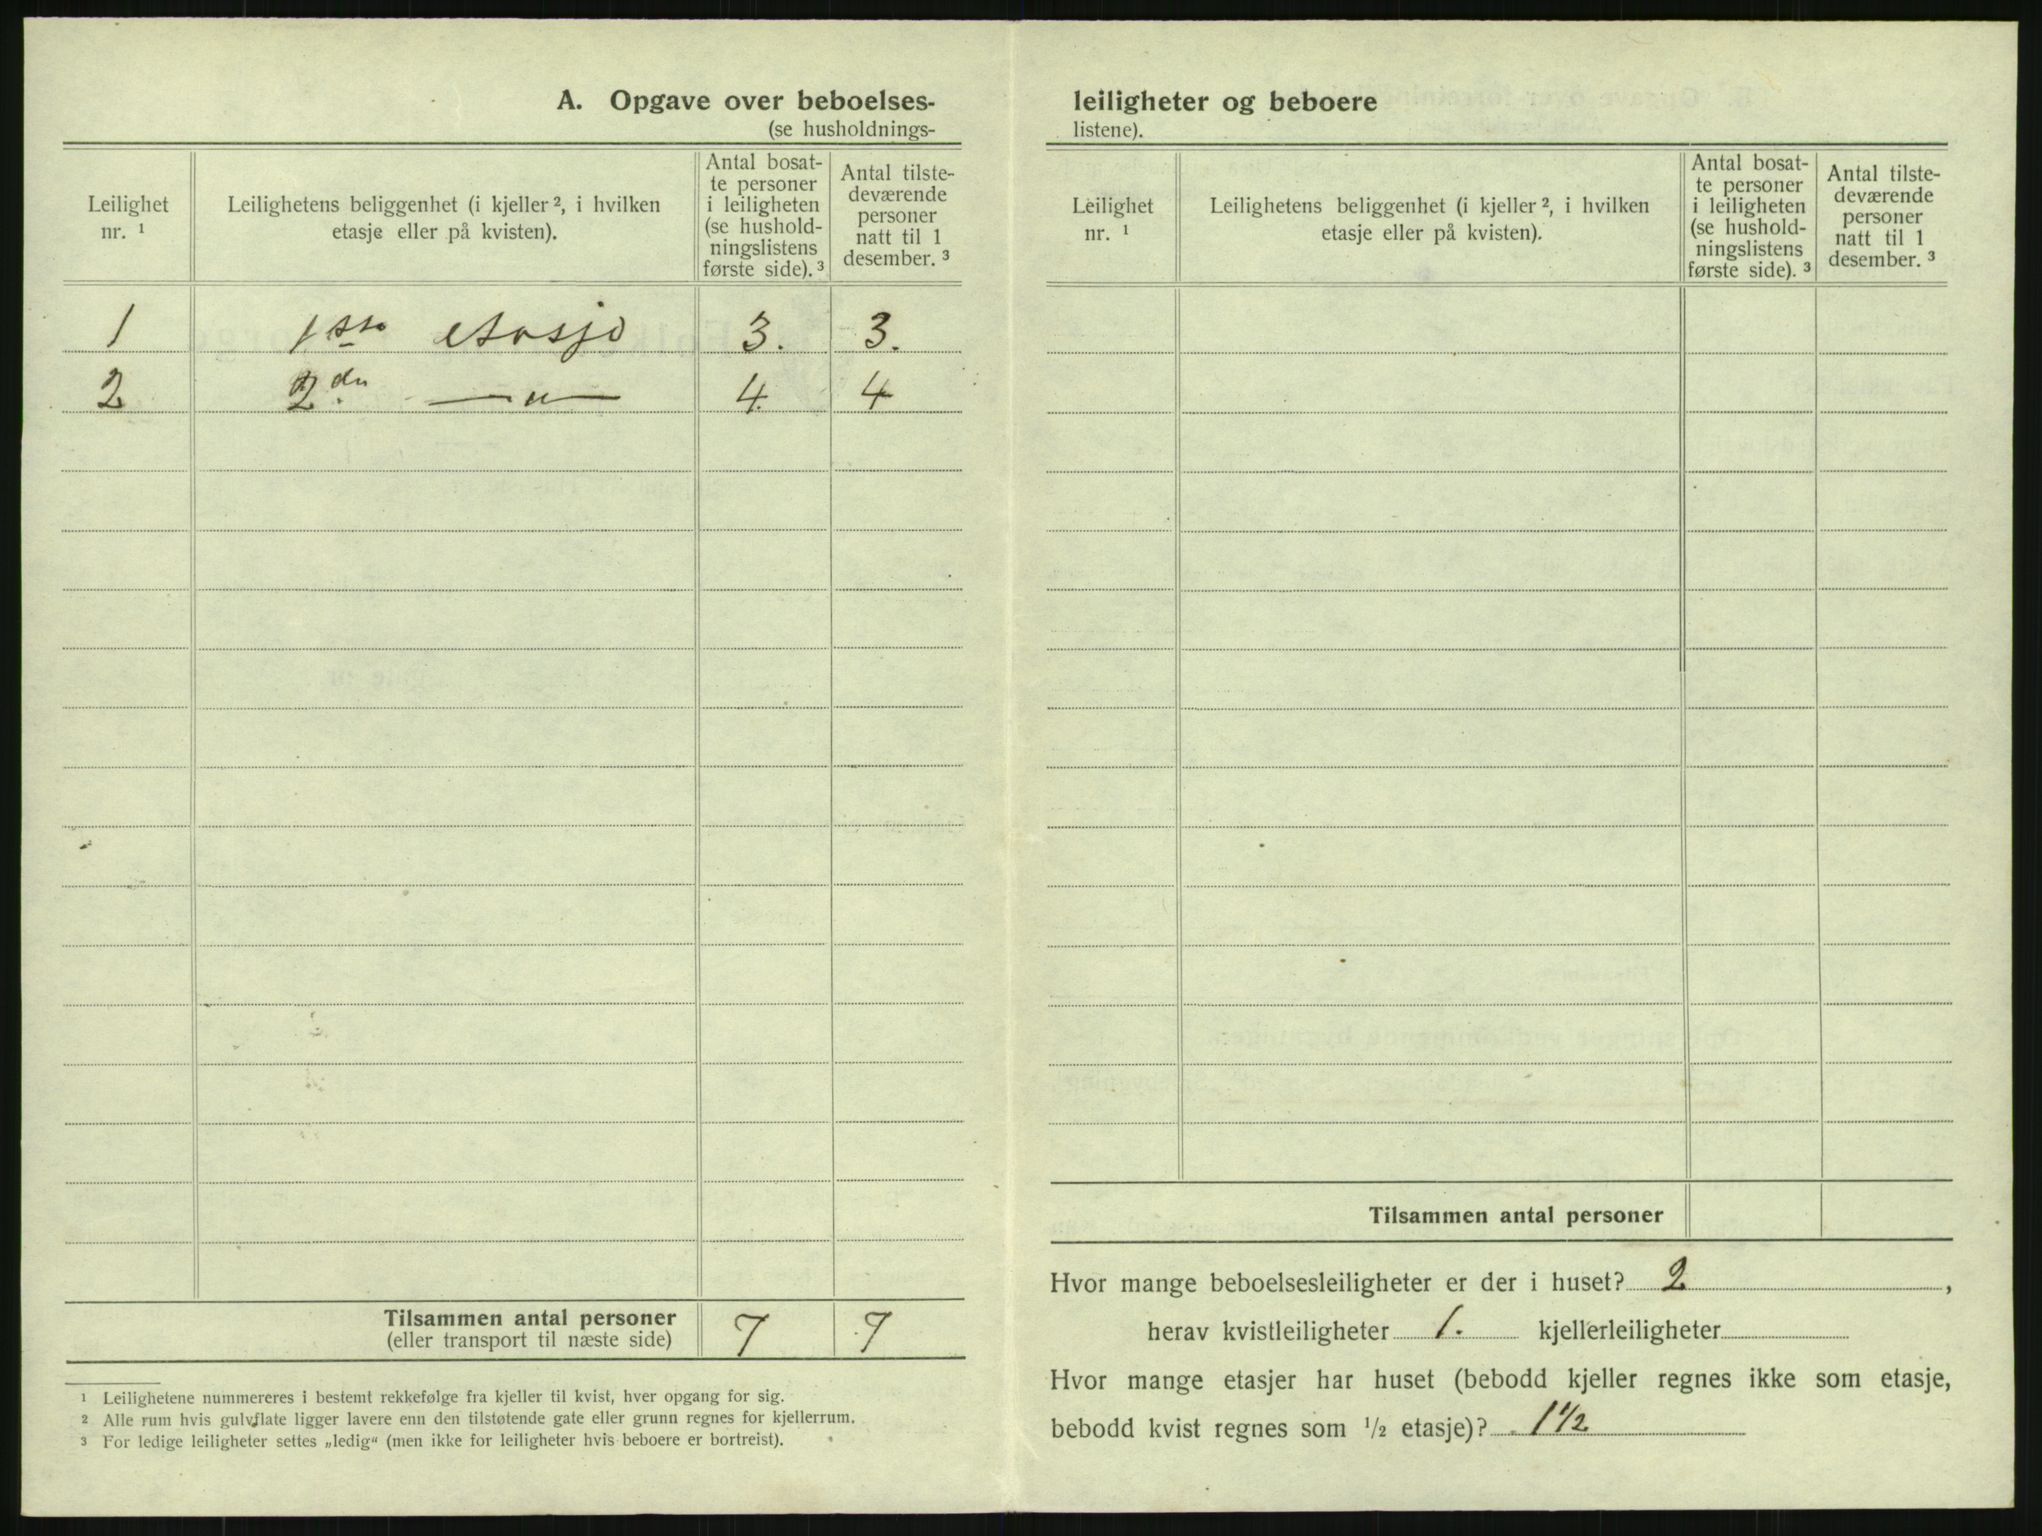 A. Opgave over beboelses-
(se husholdnings-
Leilighet
nr. ¹
Leilighetens beliggenhet (i kjeller ², i hvilken
etasje eller på kvisten).
Antal bosat-
te personer
i leiligheten
(se hushold-
ningslistens
første side). ³
Antal tilste-
deværende
personer
natt til 1
desember. ³
1 1ste etasje 3. 3.
2 2den —„— 4. 4
Tilsammen antal personer 7 7
(eller transport til næste side)
¹ Leilighetene nummereres i bestemt rekkefølge fra kjeller til kvist, hver opgang for sig.
² Alle rum hvis gulvflate ligger lavere enn den tilstøtende gate eller grunn regnes for kjellerrum.
³ For ledige leiligheter settes „ledig“ (men ikke for leiligheter hvis beboere er bortreist).
leiligheter og beboere
listene).
Leilighet
nr. ¹
Leilighetens beliggenhet (i kjeller ², i hvilken
etasje eller på kvisten).
Antal bosat-
te personer
i leiligheten
(se hushold-
ningslistens
første side). ³
Antal tilste-
deværende
personer
natt til 1
desember. ³
Tilsammen antal personer
Hvor mange beboelsesleiligheter er der i huset? 2,
herav kvistleiligheter 1. kjellerleiligheter
Hvor mange etasjer har huset (bebodd kjeller regnes ikke som etasje,
bebodd kvist regnes som ½ etasje)? 1½